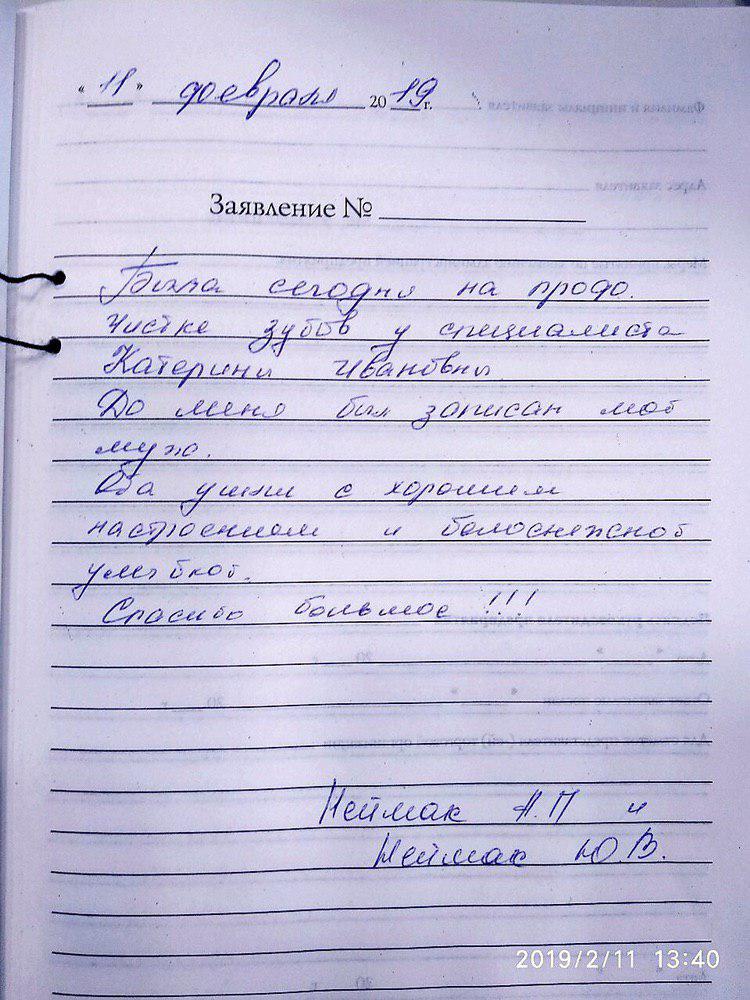 « 11 » февраля 2019 г.
Заявление №
Была сегодня на профо.
чистке зубов у специалиста
Катерины Ивановны.
До меня был записан мой
муж.
Оба ушли с хорошим
настроением и белоснежной
улыбкой.
Спасибо большое !!!
Неймак А.П и
Неймак Ю.В.
2019/2/11 13:40